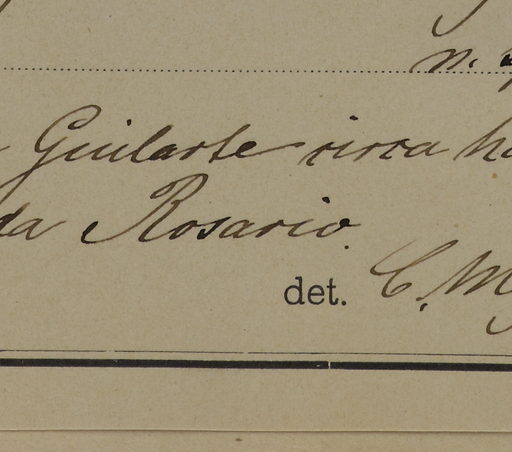 n.
Guilarte circa ha
da Rosario
det. C. M